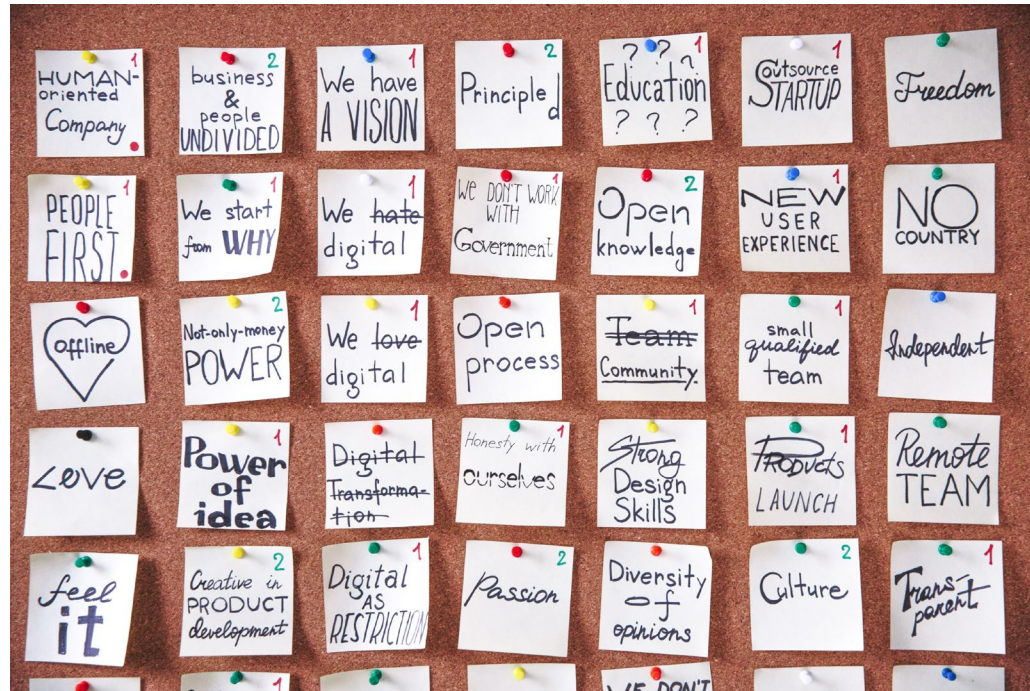 HUMAN-
oriented
Company
1
business
&
people
UNDIVIDED
2
We have
A VISION
1
Principled
2
? ? ?
Education
? ? ?
1
Outsource
STARTUP
1
Freedom
PEOPLE
FIRST
1
We start
from WHY
1
We hate
digital
1
WE DON'T WORK
WITH
Government
1
Open
knowledge
2
NEW
USER
EXPERIENCE
1
NO
COUNTRY
offline
Not-only-money
POWER
2
We love
digital
1
Open
process
Team
Community
1
small
qualified
team
1
Independent
Love
Power
of
idea
1
Digital
Transforma-
tion
Honesty with
ourselves
1
Strong
Design
Skills
PRODUCTS
LAUNCH
1
Remote
TEAM
feel
it
Creative in
PRODUCT
development
2
Digital
AS
RESTRICTION
1
Passion
2
Diversity
of
opinions
Culture
2
Trans-
parent
1
1
WE DON'T